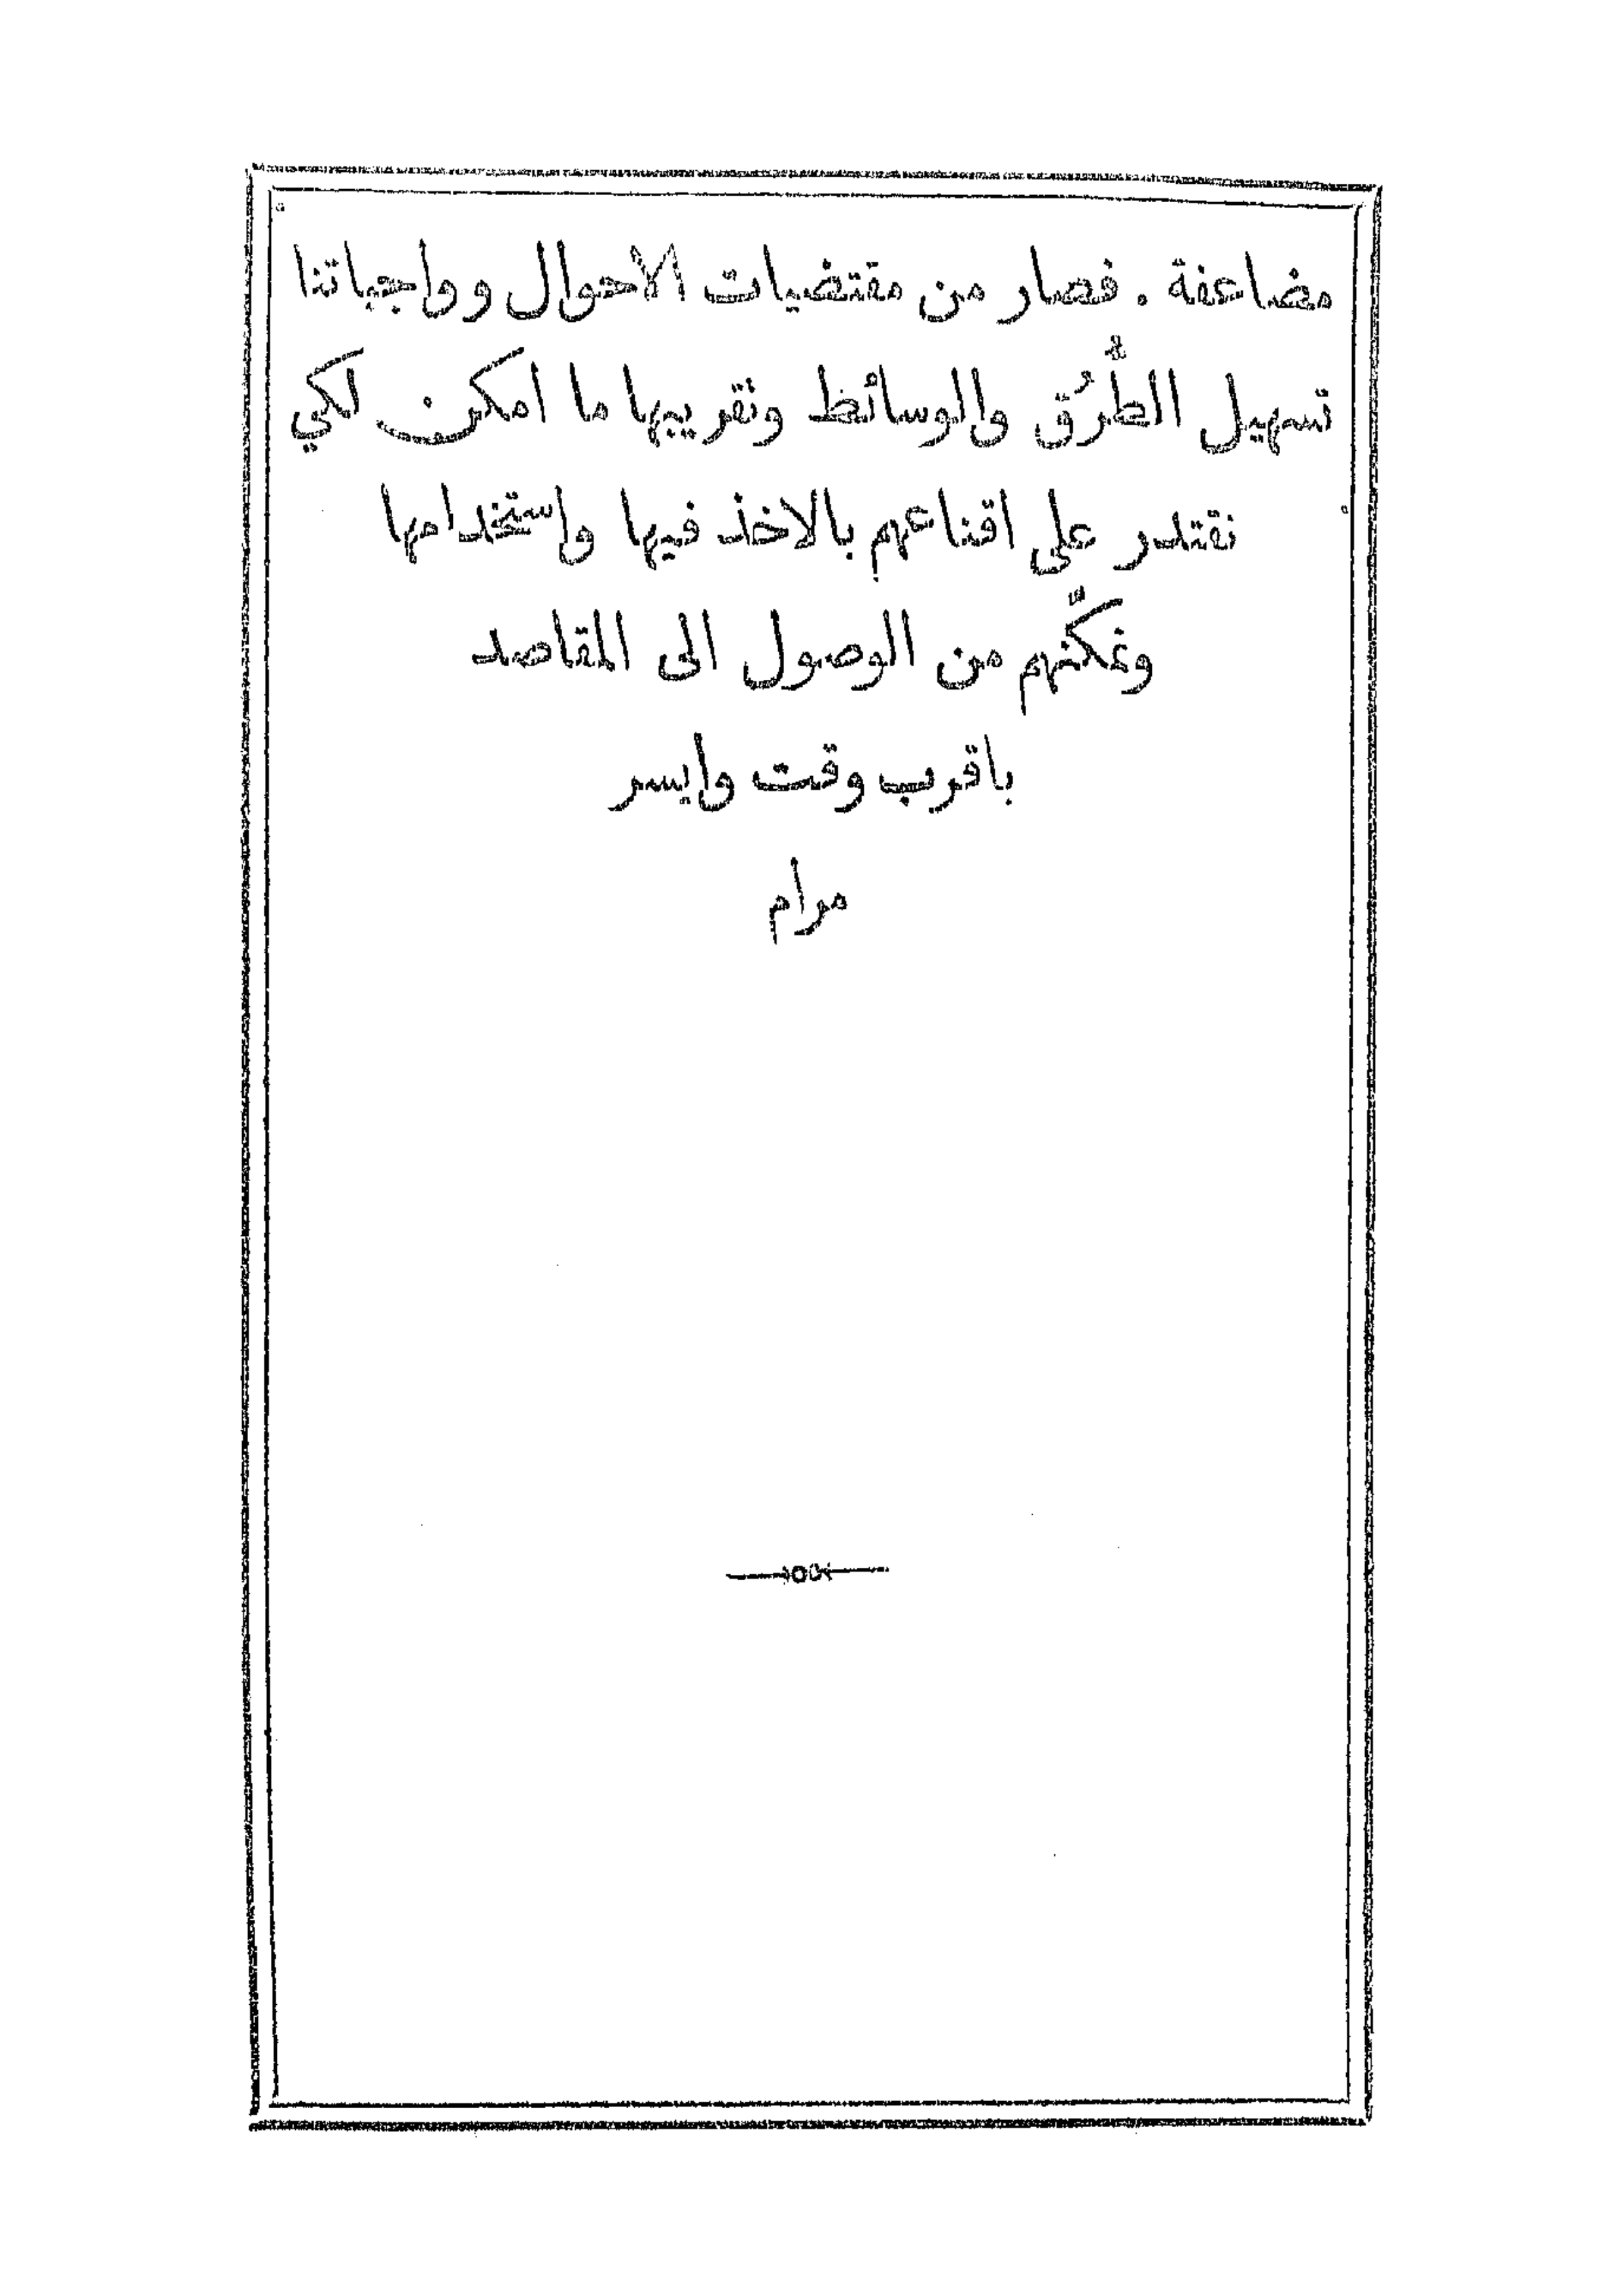 مضاعفة . فصار من مقتضيات الاحوال وواجباتنا
تسهيل الطُّرُق والوسائط وتقريبها ما امكن لكي
نقتدر على اقناعهم بالاخذ فيها واستخدامها
ونمكّنهم من الوصول الى المقاصد
باقرب وقت وايسر
مرام